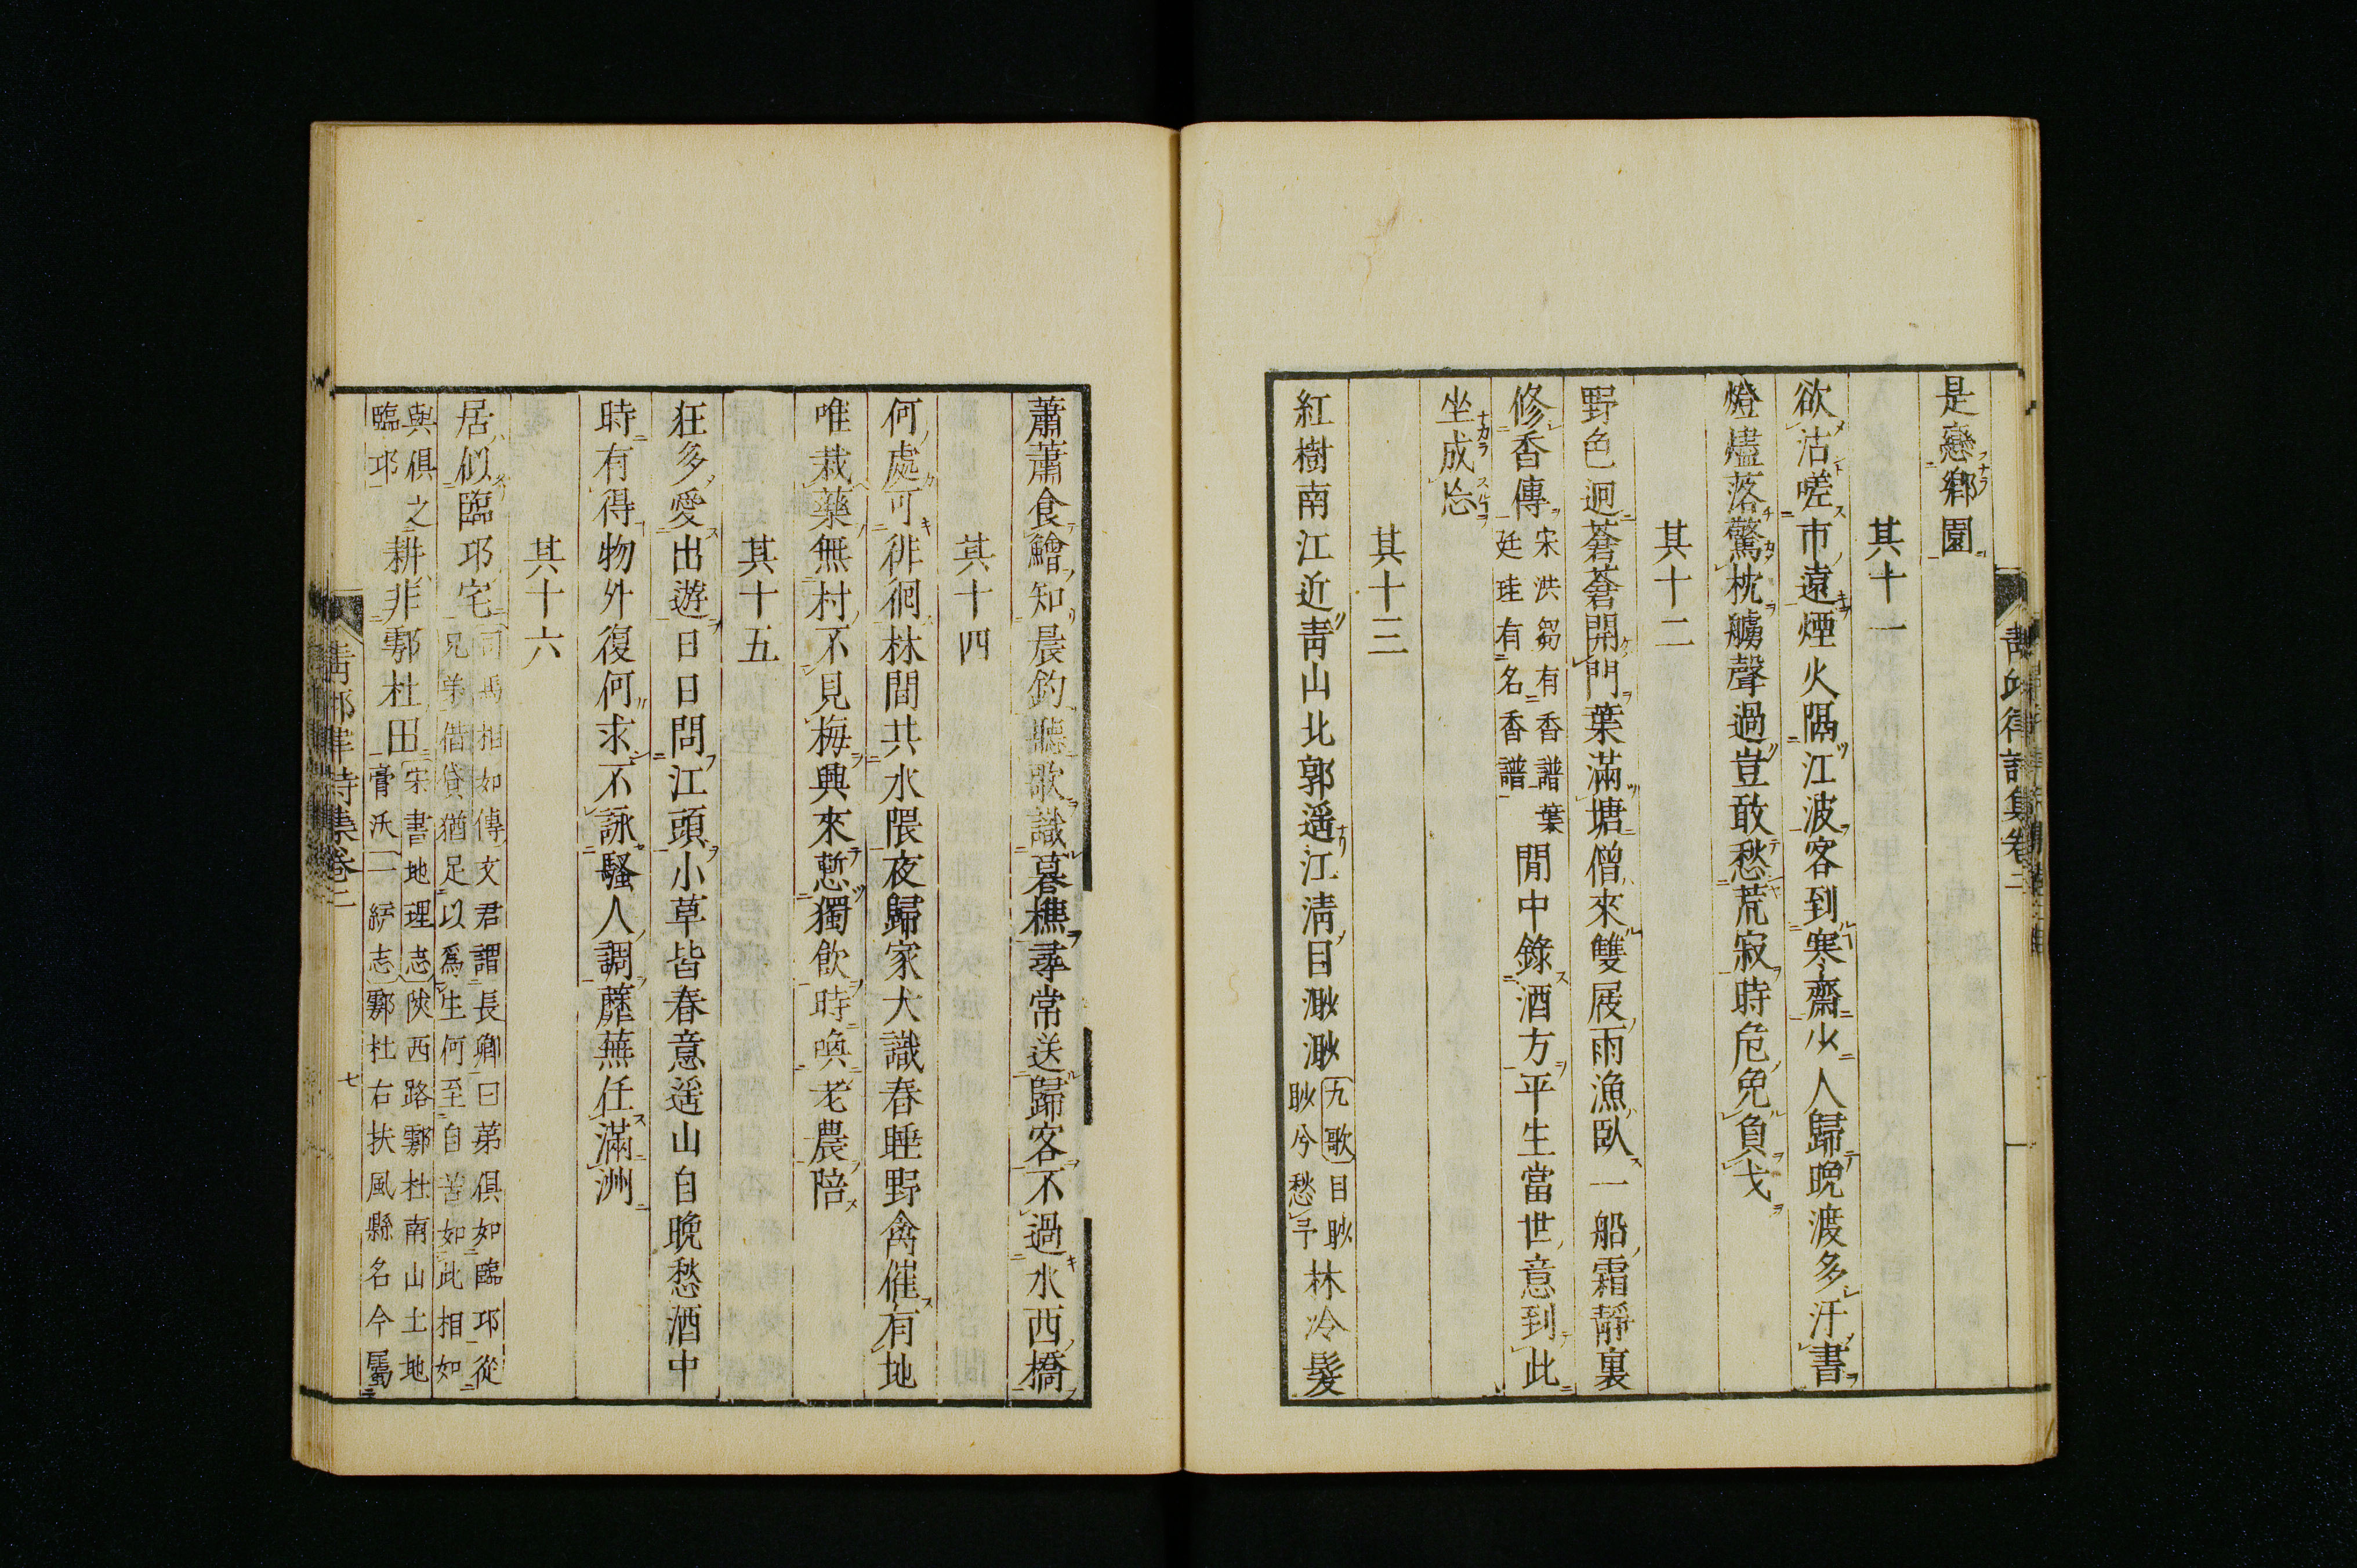 是戀鄉園
其十一
欲沽嗟市遠煙火隔江波客到寒齋少人歸晩渡多汗書
燈燼落驚枕艣聲過豈敢愁荒寂時危免負戈
其十二
野色迥蒼蒼開門葉滿塘僧來雙屐雨漁臥一船霜靜裏
修香傳宋洪芻有香譜葉廷珪有名香譜閒中錄酒方平生當世意到此
坐成忘
其十三
紅樹南江近靑山北郭遥江淸目渺渺九歌目眇眇兮愁予林冷髮
蕭蕭食鱠知晨釣聽歌識暮樵尋常送歸客不過水西橋
其十四
何處可徘徊林間共水隈夜歸家犬識春睡野禽催有地
唯栽藥無村不見梅興來慙獨飮時喚老農陪
其十五
狂多愛出遊日日問江頭小草皆春意遥山自晩愁酒中
時有得物外復何求不詠騷人調蘼蕪任滿洲
其十六
居似臨邛宅司馬相如傳文君謂長卿曰苐俱如臨邛從兄弟借貸猶足以爲生何至自苦如此相如
與俱之臨邛耕非鄠杜田宋書地理志陜西路鄠杜南山土地膏沃一統志鄠杜右扶風縣名今屬
靑邱律詩集卷二
七